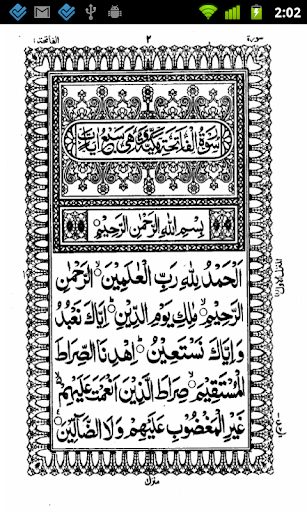 2:02
سورة ٢ الفاتحة ١
سُوْرَةُ الْفَاتِحَةِ مَكِّيَّةٌ وَّهِيَ سَبْعُ اٰيَاتٍ
بِسْمِ اللّٰهِ الرَّحْمٰنِ الرَّحِيْمِ
اَلْحَمْدُ لِلّٰهِ رَبِّ الْعٰلَمِيْنَ ۙ الرَّحْمٰنِ
الرَّحِيْمِ ۙ مٰلِكِ يَوْمِ الدِّيْنِ ؕ اِيَّاكَ نَعْبُدُ
وَاِيَّاكَ نَسْتَعِيْنُ ؕ اِهْدِنَا الصِّرَاطَ
الْمُسْتَقِيْمَ ۙ صِرَاطَ الَّذِيْنَ اَنْعَمْتَ عَلَيْهِمْ ۙ
غَيْرِ الْمَغْضُوْبِ عَلَيْهِمْ وَلَا الضَّآلِّيْنَ
منزل